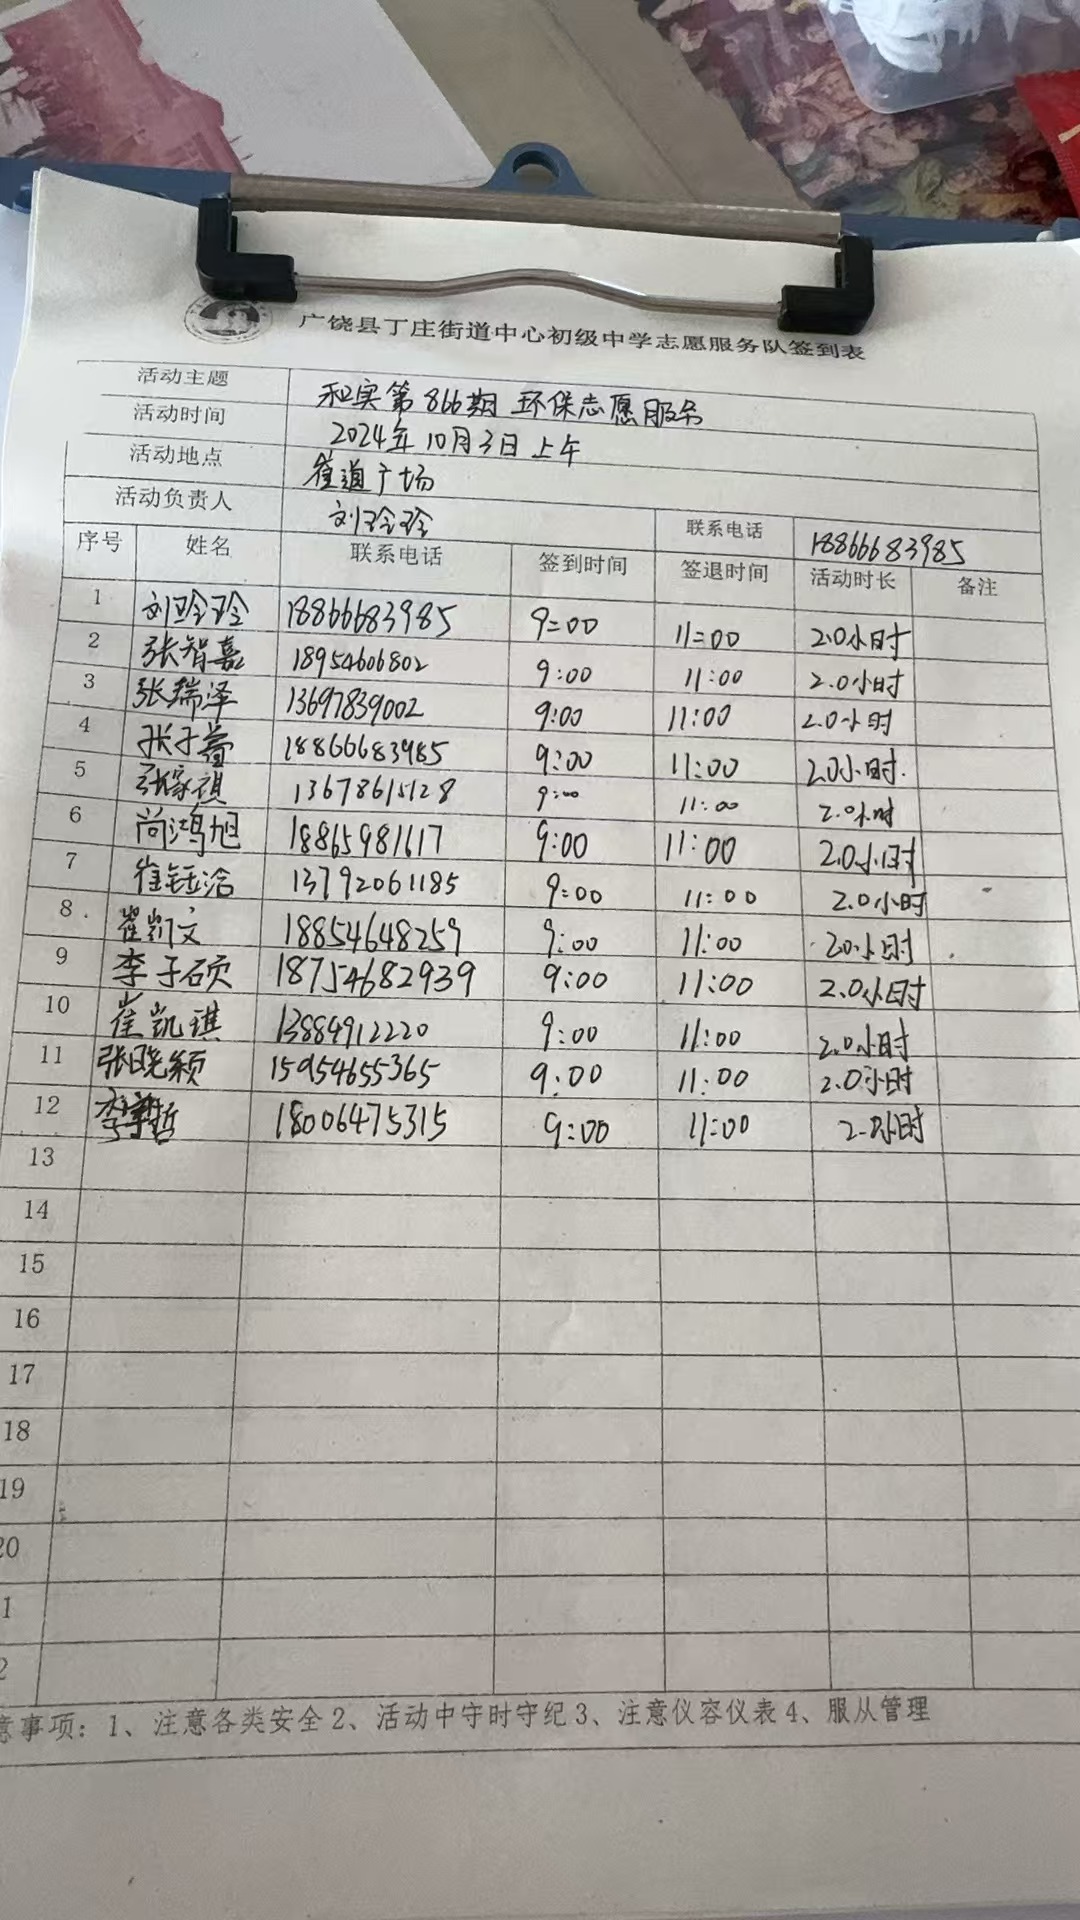 广饶县丁庄街道中心初级中学志愿服务队签到表
活动主题 和实第866期 环保志愿服务
活动时间 2024年10月3日上午
活动地点 街道广场
活动负责人 刘玲玲 联系电话 18866683985
序号 姓名 联系电话 签到时间 签退时间 活动时长 备注
1 刘玲玲 18866683985 9:00 11:00 2.0小时
2 张智嘉 18954606802 9:00 11:00 2.0小时
3 张瑞泽 13697839002 9:00 11:00 2.0小时
4 张子萱 18866683985 9:00 11:00 2.0小时.
5 张家祺 13678615128 9:00 11:00 2.0小时
6 尚鸿旭 18865981617 9:00 11:00 2.0小时
7 崔钰涵 13792061185 9:00 11:00 2.0小时
8 崔凯文 18854648259 9:00 11:00 2.0小时
9 李子硕 18754682939 9:00 11:00 2.0小时
10 崔凯琪 13884912220 9:00 11:00 2.0小时
11 张晓颖 15954655365 9:00 11:00 2.0小时
12 哲 18006475315 9:00 11:00 2.0小时
13
14
15
16
17
18
19
20
1
2
意事项：1、注意各类安全2、活动中守时守纪3、注意仪容仪表4、服从管理